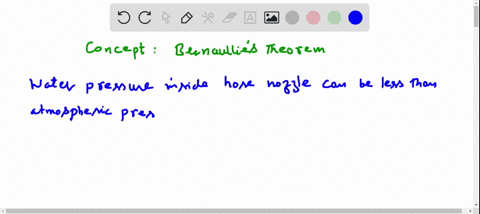 Concept : Bernaullie's Theorem
Water pressure inside hose nozzle can be less than
atmospheric pres